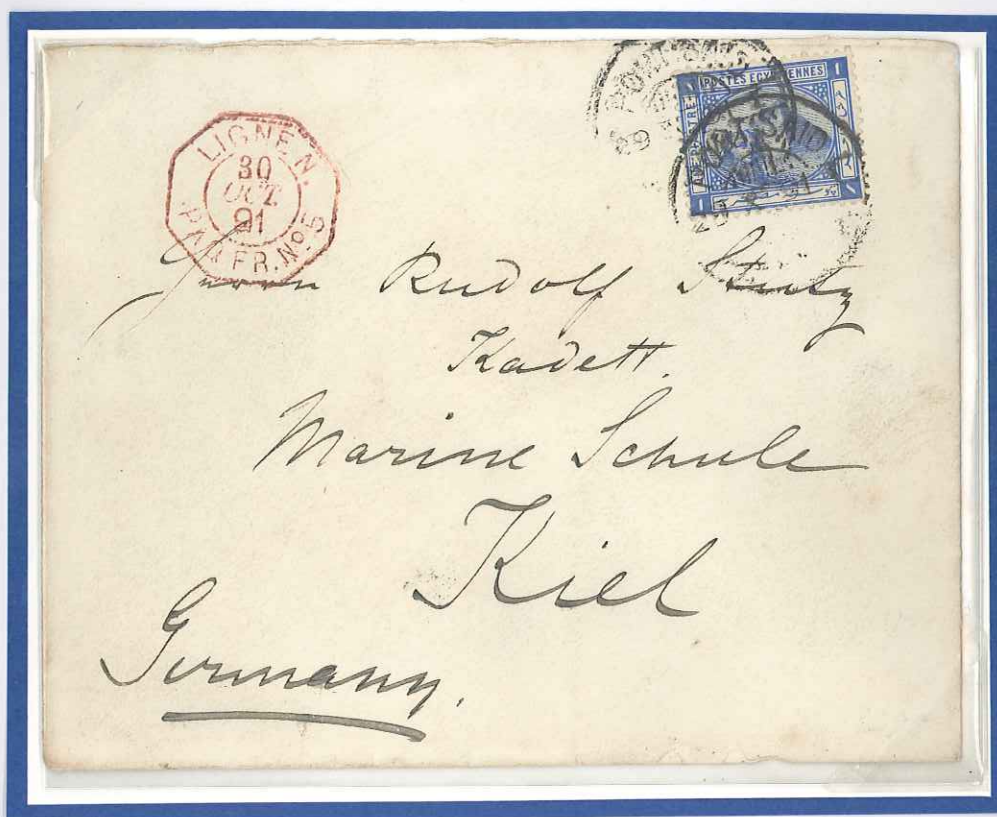 LIGNE N.
30
OCT.
91
PAQ. FR. No. 5
PORT SAID
29
POSTES EGYPTIENNES
1
1
PORT-SAID
91
1
Herrn Rudolf
Kadett.
Marine Schule
Kiel
Germany.